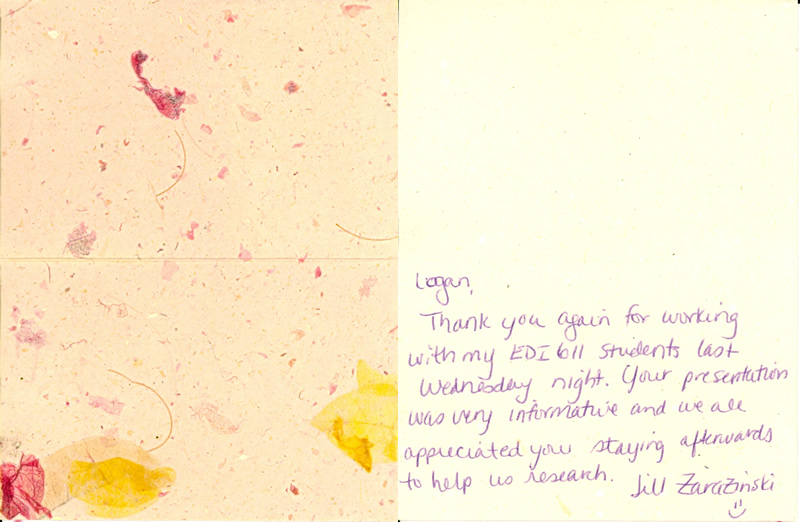 Logan,
Thank you again for working
with my EDI 611 students last
Wednesday night. Your presentation
was very informative and we all
appreciated you staying afterwards
to help us research. Jill Zarazinski